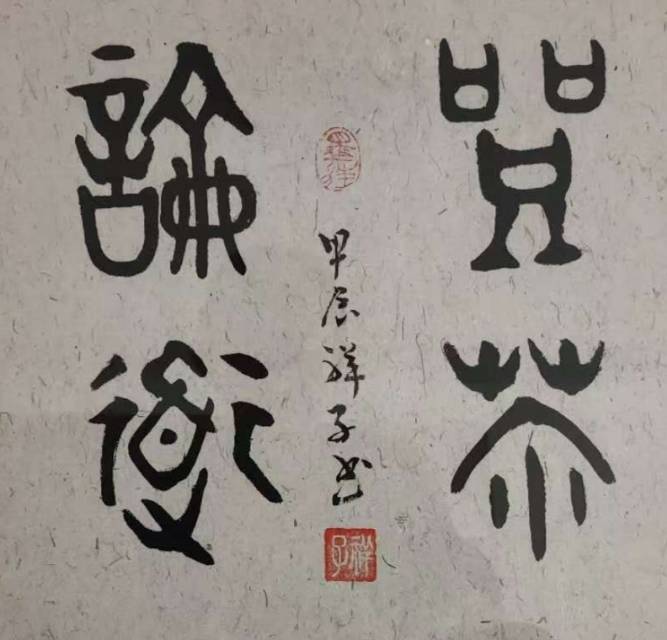 品茶
論道
甲辰祥子书
祥子